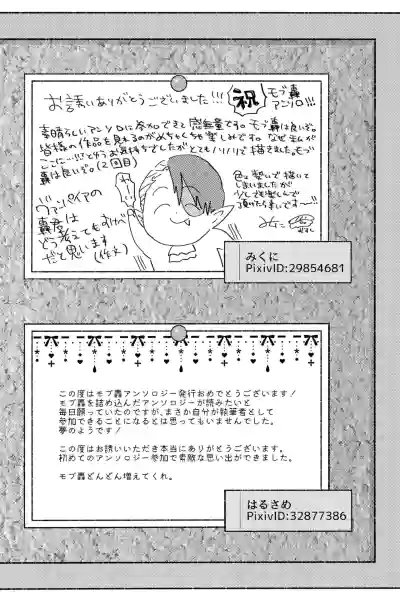 お誘いありがとうございました!!!
祝
モブ轟
アンソロ!!!
素晴らしいアンソロに参加できて感無量です。モブ轟は良いぞ。
皆様の作品を見れるのがめちゃくちゃ楽しみです。なぜ私が
ここに…!!?というお気持ちでしたがとてもノリノリで描きました。モブ
轟は良いぞ。(2回目)
ヴァンパイアの
轟君は
どう考えても
だと思います
(作文)
色々繋いで描いて
しまいましたが
少しでも楽しんで
頂けたら幸いです〜
みくに
PixivID:29854681
この度はモブ轟アンソロジー発行おめでとうございます!
モブ轟を詰め込んだアンソロジーが読みたいと
毎日願っていたのですが、まさか自分が執筆者として
参加できることになるとは思ってもいませんでした。
夢のようです!
この度はお誘いいただき本当にありがとうございます。
初めてのアンソロジー参加で素敵な思い出ができました。
モブ轟どんどん増えてくれ。
はるさめ
PixivID:32877386